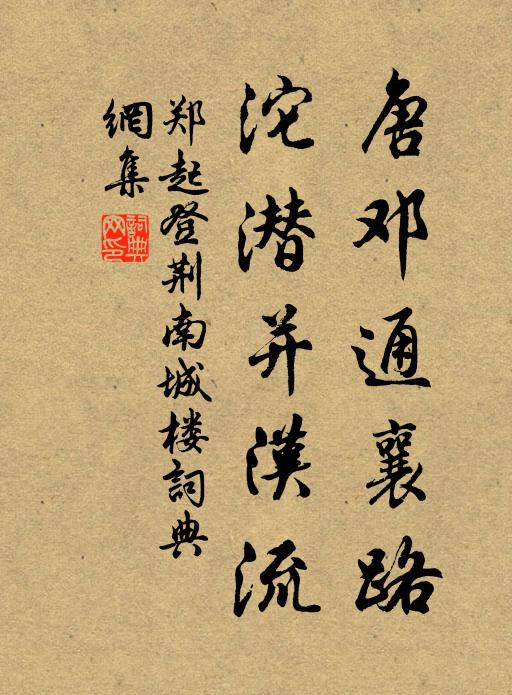 唐邓通襄路
沱潜并漢流
郑起登荆南城楼詞典
網集
詞典
网印